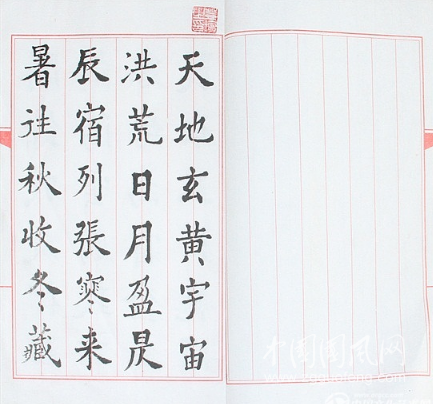 天地玄黄宇宙
洪荒日月盈昃
辰宿列張寒来
暑往秋收冬藏
中国国风网